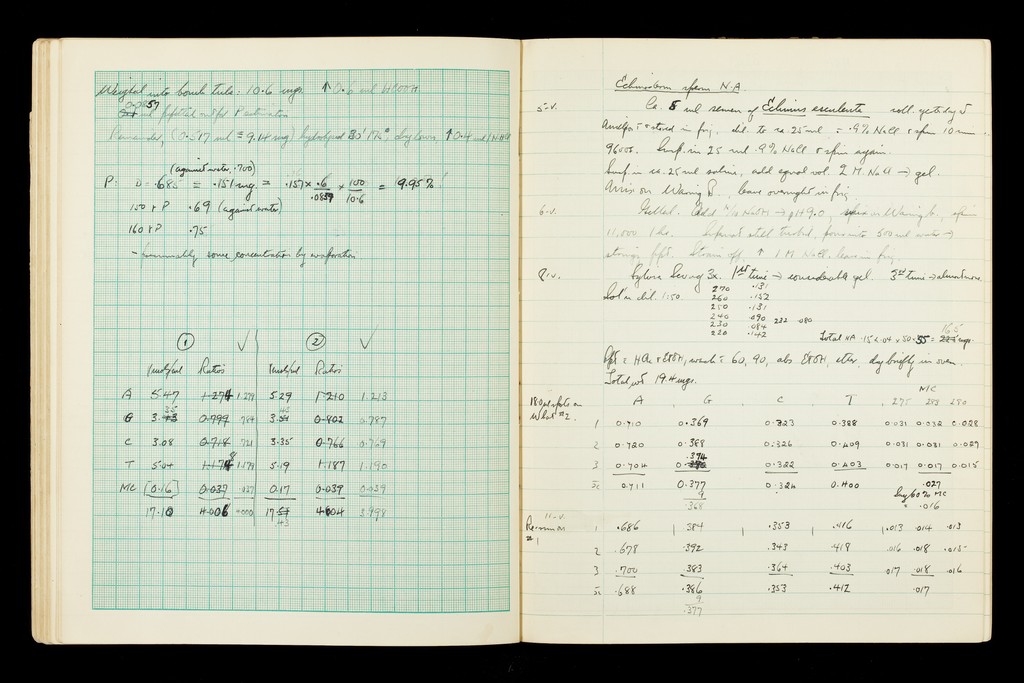 Weighed into bomb tube: 10.6 mgs. ↑ 0.6 ml HCOOH
0.0857
ml pipetted out for P estimation
Remainder, (0.517 ml ≡ 9.14 mg) hydrolysed 30' 175°, dry down, ↑ 0.4 ml N HCl
(against water, .700)
P: D = .685 ≡ .151 mg ≡ .157 × .6/.0857 × 100/10.6 = 9.95%!
150 γ P .69 (against water)
160 γ P .75
- presumably some concentration by evaporation
① ✓ ② ✓
Ratios Ratios
A 5.47 1.274 1.279 5.29 1.210 1.213
G 3.35 0.799 .784 3.45 0.802 0.787
C 3.08 0.718 .721 3.35 0.766 0.769
T 5.04 1.178 1.179 5.19 1.187 1.190
MC [0.16] 0.037 .037 0.17 0.039 0.039
17.10 4.006 4.000 17.43 4.004 3.998
Echinoderm sperm N.A.
5.v. Ca. 5 ml semen of Echinus esculentus coll. yesterday
& stored in frig. dil. to ca. 25 ml = .9% NaCl & spin 10 min
9600. Susp. in 25 ml .9% NaCl & spin again.
Susp. in ca. 25 ml saline, add equal vol. 2 M. NaCl → gel.
on Waring B. leave overnight in frig.
6.v. Gelled. Add N/10 NaOH → pH 9.0, spin in Waring b., spin
11,000 1 hr. Supernat. still turbid, pour into 500 ml water →
stringy ppt. Strain off, ↑ 1 M NaCl, leave in frig.
8.v. Sylvia Sevag 3x. 1st time → considerable gel. 3rd time → almost none
Sol'n dil. 1:50
270 .131
260 .152
250 .131
240 .090 232 .080
230 .084
220 .142
Total NA .152 × .04 × 50 × 55 = 16.5 mgs.
Ppt = HCl & EtOH, wash = 60, 90, abs EtOH, ether, dry briefly in oven.
Total wt 19.4 mgs.
MC
A G C T 275 283 290
1 0.710 0.369 0.323 0.388 0.031 0.032 0.028
2 0.720 0.388 0.326 0.409 0.031 0.031 0.027
.374
3 0.704 0.322 0.403 0.017 0.017 0.015
x̄ 0.711 0.377 0.324 0.400 .027
9
.368
Say 60% MC
= .016
11-v.
1 .686 .384 .353 .416 .013 .014 .013
2 .678 .392 .343 .419 .016 .018 .015
3 .700 .383 .364 .403 .017 .018 .016
x̄ .688 .386 .353 .412 .017
9
.377